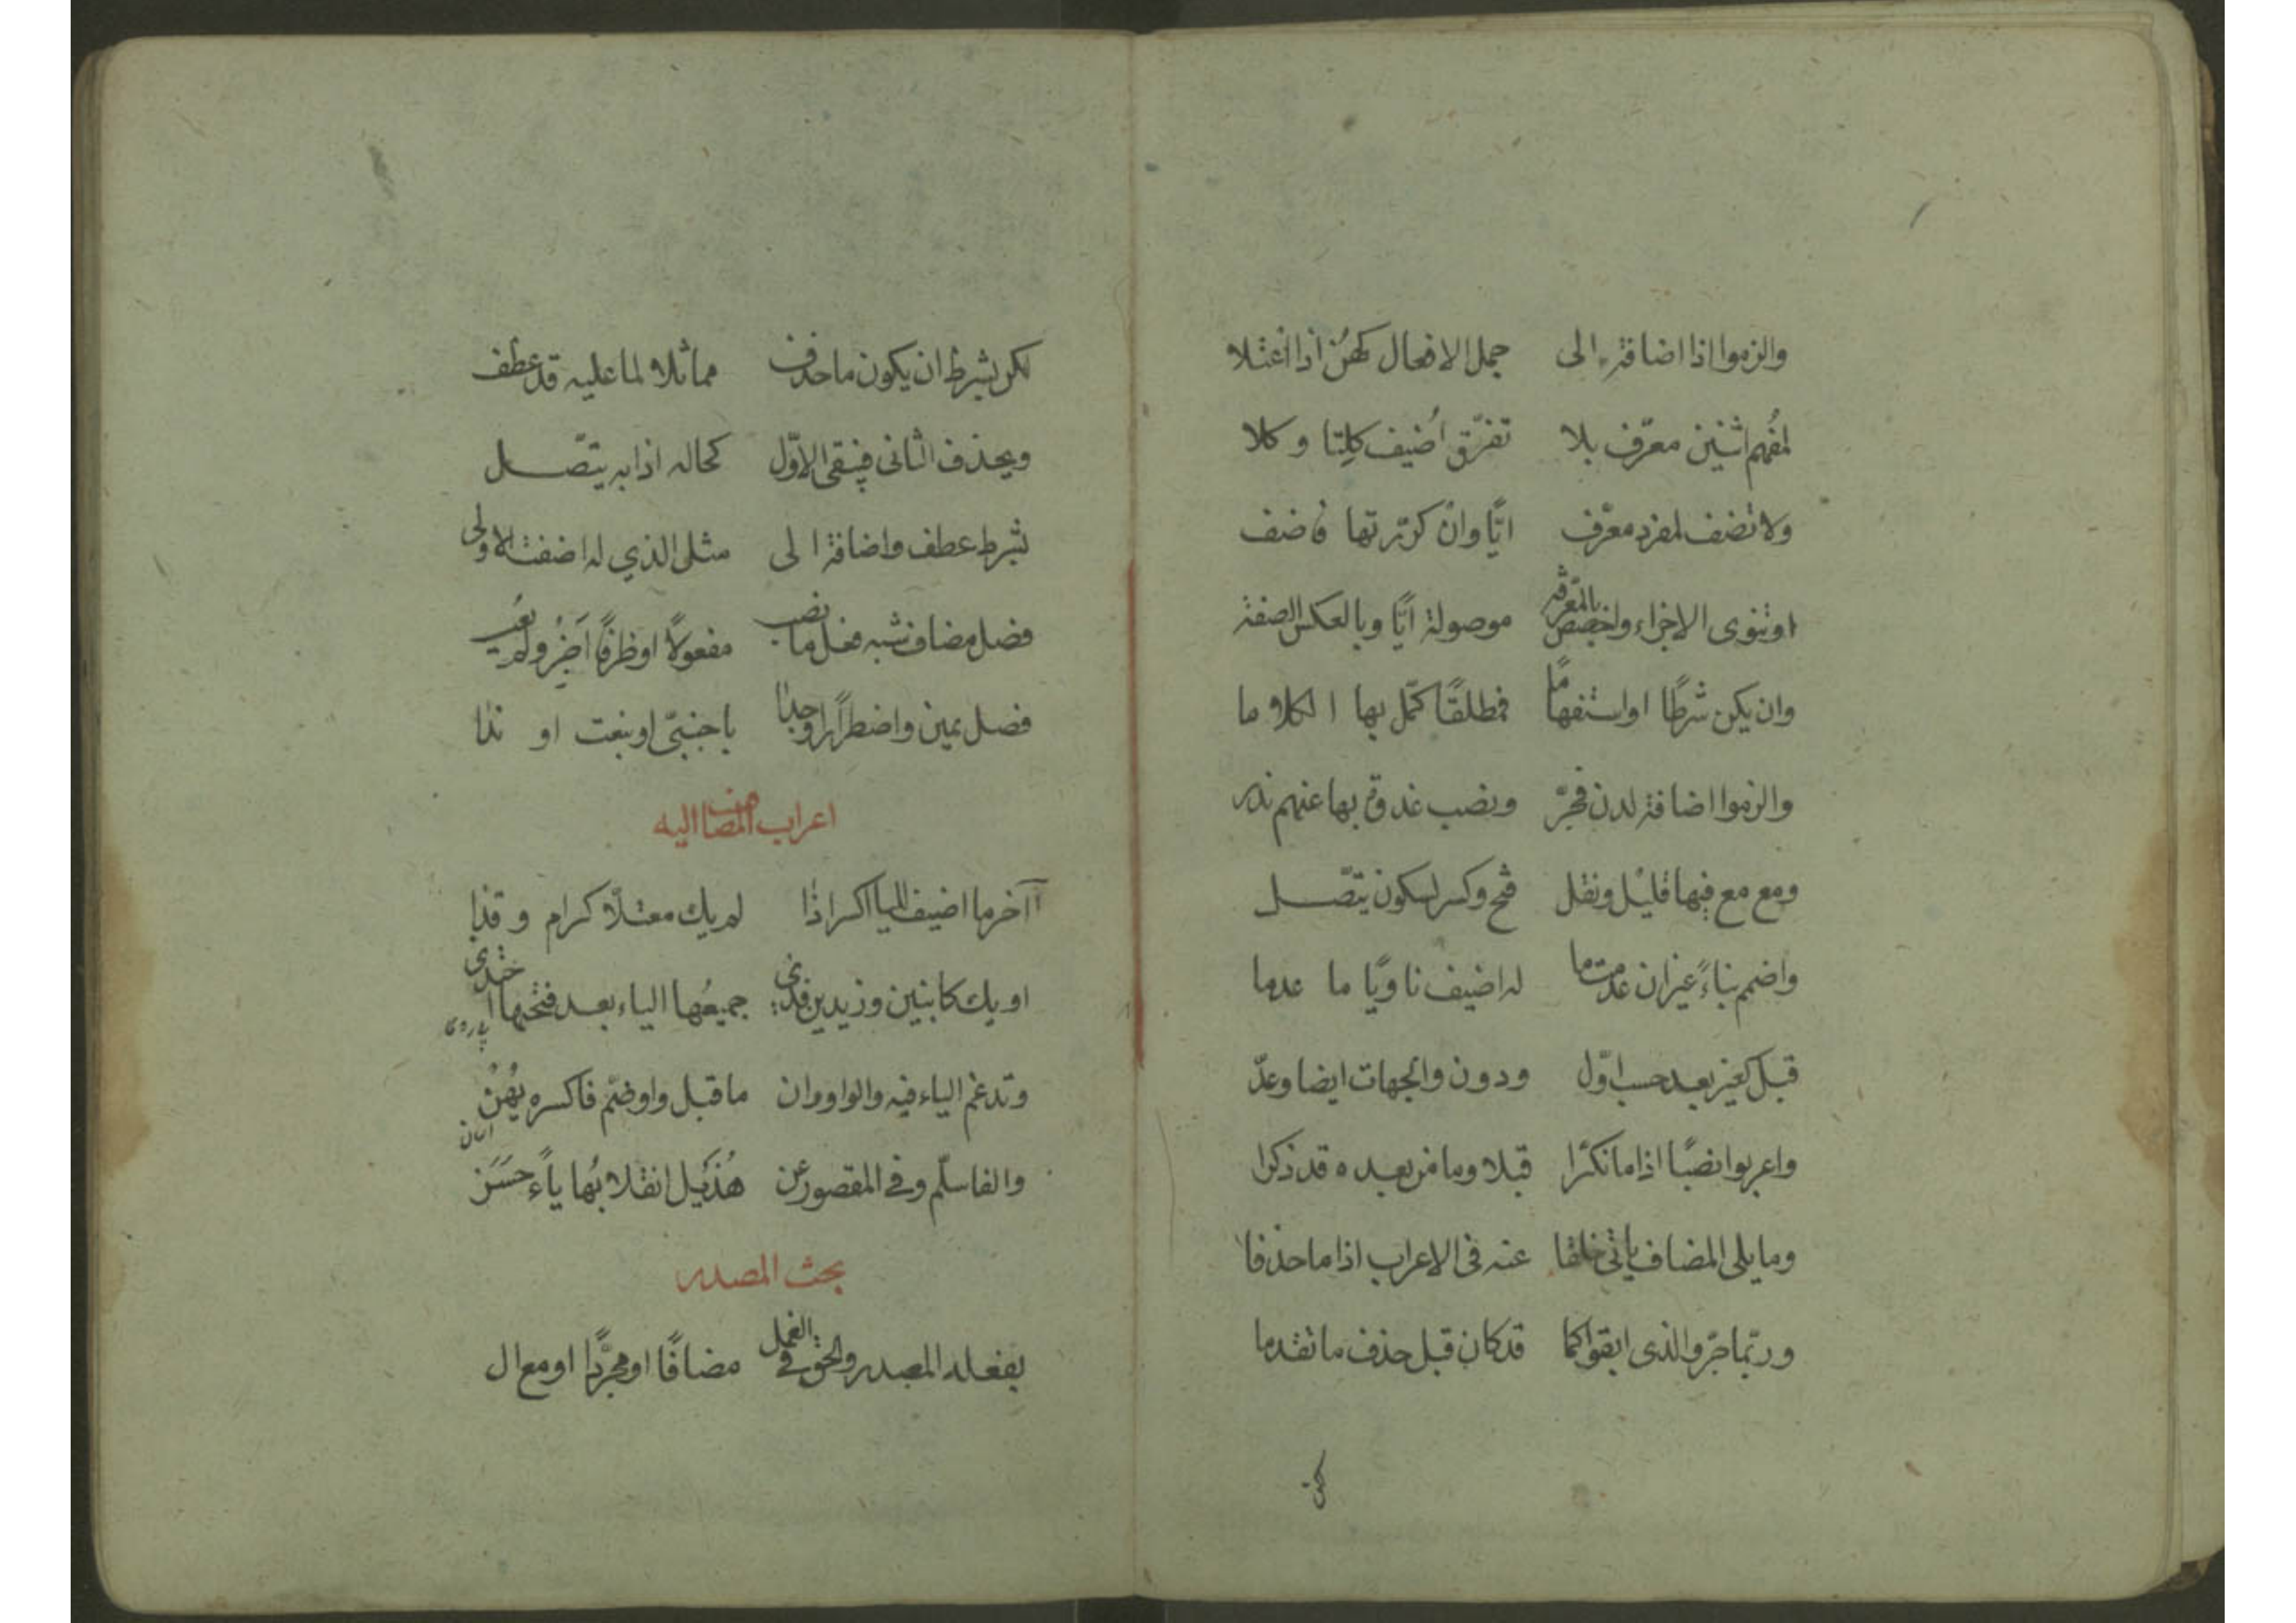 والزموا اذا اضافة الى جمل الافعال كهن اذا اعتلا
لمفهم اثنين معرّف بلا تفرّق اُضيف كِلتا وكلا
ولا تضف لمفرد معرّف ايًّا وان كرّرتها فاضف
او تنوى الاجزاء واخصص بالمعرفة موصولة ايًّا وبالعكس الصفة
وان يكن شرطًا او استفهامًا فمطلقًا كمّل بها الكلاما
والزموا اضافة لدن فجرّ ونصب غدوة بها عنهم ندر
ومع مع فيها قليل ونقل فتح وكسر لسكون يتّصل
واضمم بناءً غير ان عدمت ما له اضيف ناويًا ما عدما
قبل كغير بعد حسب اوّل ودون والجهات ايضا وعلّ
واعربوا نصبًا اذا ما نكّرا قبلا وما من بعده قد ذكرا
وما يلى المضاف ياتى خلفا عنه فى الاعراب اذا ما حذفا
وربّما جرّوا الذى ابقوا كما قد كان قبل حذف ما تقدما
لكن
لكن بشرط ان يكون ما حذف مماثلا لما عليه قد عطف
ويحذف الثانى فيبقى الاوّل كحاله اذا به يتّصل
بشرط عطف واضافة الى مثل الذي له اضفت الاولى
فصل مضاف شبه فعل ما نصب مفعولاً او ظرفًا اَجِزْ ولم يُعَب
فصل يمين واضطرارًا وجدا باجنبىّ او بنعت او ندا
اعراب المضاف اليه
آخر ما اضيف لليا اكسر اذا لم يك معتلّا كرام وقذا
او يك كابنين وزيدين فذى جميعُها الياء بعد فتحها احتذى
وتدغم الياء فيه والواو وان ما قبل واو ضمّ فاكسره يهُنْ
والفا سلّم وفى المقصور عن هُذَيل انقلابُها ياءً حَسَن
بحث المصدر
بفعله المصدر والحق فى العمل مضافًا او مجرّدا او مع ال